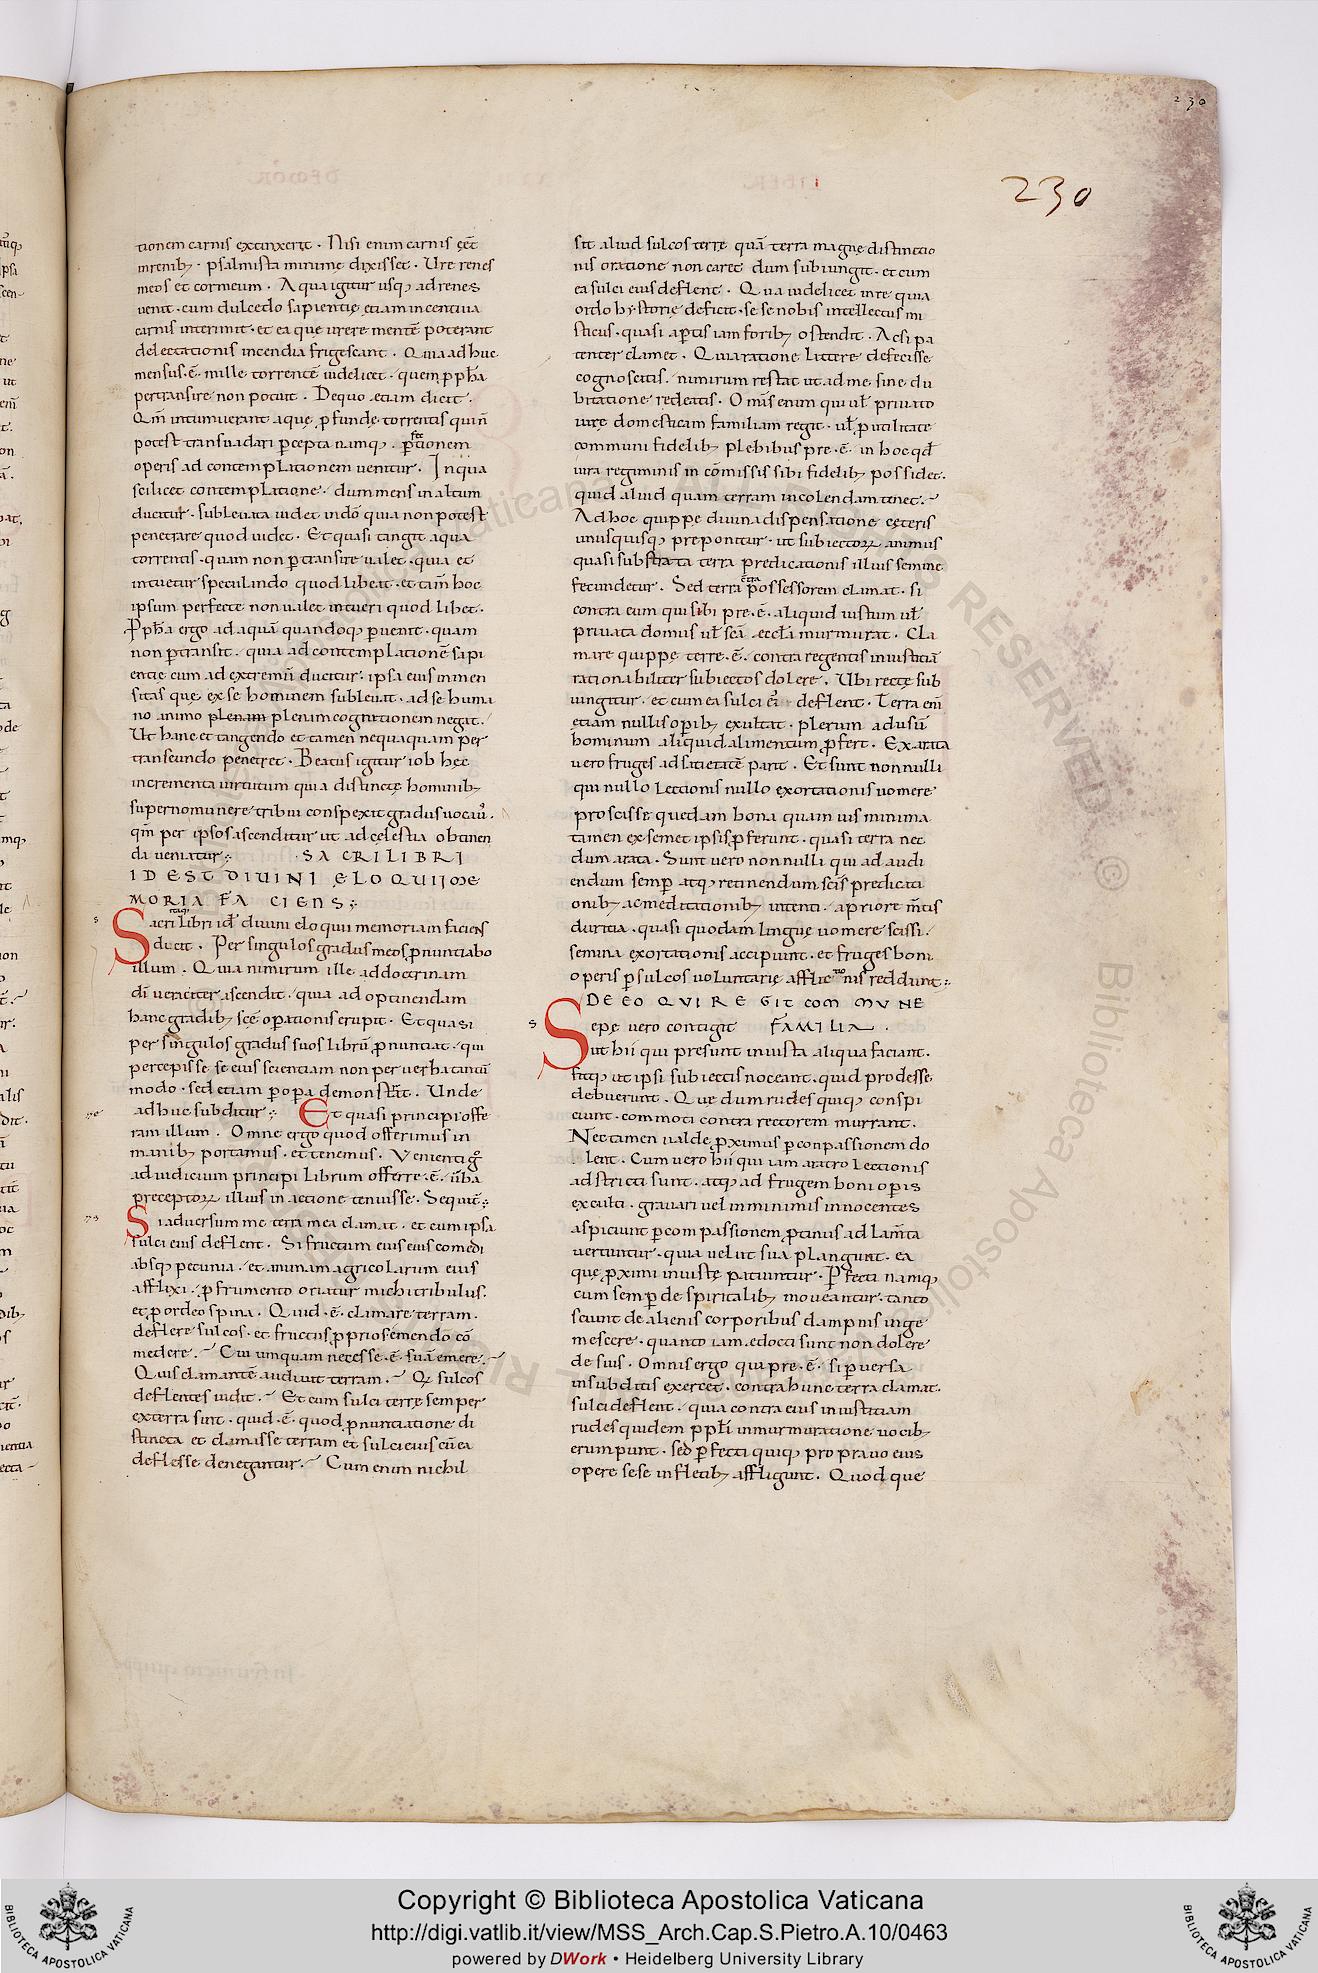 230
230
tionem carnis extinxerit . Nisi enim carnis eēt
inrenib; . psalmista minime dixisset . Ure renes
meos et cor meum . Aqua igitur usq; ad renes
uenit . cum dulcedo sapientię etiam incentiua
carnis interimit . et ea que urere mentē poterant
delectationis incendia frigescant . Quia adhuc
mensus .ē. mille torrentē uidelicet . quem pph̄a
pertransire non potuit . De quo etiam dicit .
Qm̄ intumuerant aquę pfundę torrentis qui n̄
potest transuadari percepta namq; . pfectionem
operis ad contemplationem uenitur . In qua
scilicet contemplatione . dum mens in altum
ducitur . subleuata uidet in dō quia non potest
penetrare quod uidet . Et quasi tangit aqua
torrentis . quam non ptransire ualet . quia et
intuetur speculando quod libeat . et tam̄ hoc
ipsum perfecte non ualet intueri quod libet .
Pph̄a ergo ad aquā quandoq; puenit . quam
non ptransit . quia ad contemplationē sapi
entię cum ad extremū ducitur . ipsa eius inmen
sitas quę ex se hominem subleuat . ad se huma
no animo plenam plenim cognitionem negit .
Ut hanc et tangendo et tamen nequaquam per
transeundo penetret . Beatus igitur iob hęc
incrementa uirtutum quia distincte hominib;
superno munere tribui conspexit gradus uocaū .
qm̄ per ipsos ascenditur ut ad cęlestia obtinen
da ueniatur . SACRI LIBRI
ID EST DIUINI ELOQUII ME
MORIA FACIENS ;
Sacri itaq; libri id ē diuini eloquii memoriam faciens
ducit . Per singulos gradus meos pnuntiabo
illum . Quia nimirum ille ad doctrinam
di ueraciter ascendit . quia ad optinendam
hanc gradib; scę opationis erupit . Et quasi
per singulos gradus suos librū pnuntiat . qui
percepisse se eius scientiam non per uerba tantū
modo . sed etiam p opa demonstrat . Unde
adhuc subditur ; Et quasi principi offe
ram illum . Omne ergo quod offerimus in
manib; portamus . et tenemus . Uenienti g
ad iudicium principi librum offerre .ē. uba
preceptorꝝ illius in actione tenuisse . Sequit̄ ;
Si aduersum me terra mea clamat . et cum ipsa
sulci eius deflent . Si fructum eius eius comedi
absq; pecunia . et animam agricolarum eius
afflixi . p frumento oriatur michi tribulus .
et p ordeo spina . Quid .ē. clamare terram .
deflere sulcos . et fructus pprios emendo cō
medere . Cui umquam necesse .ē. suā emere .
Quis clamantē audiuit terram . Qꝫ sulcos
deflentes uidit . Et cum sulci terrę semper
ex terra sint . quid .ē. quod pnuntiatione di
stincta et clamasse terram et sulci eius cū ea
deflesse denegantur . Cum enim nichil
sit aliud sulcos terrę quā terra magnę distinctio
nis oratione non caret dum subiungit . et cum
ea sulci eius deflent . Qua uidelicet in re quia
ordo hystorię deficit . sese nobis intellectus mi
sticus . quasi aptis iam forib; ostendit . Ac si pa
tenter clamet . Quia ratione litterę defecisse
cognoscitis . nimirum restat ut ad me sine du
bitatione redeatis . Om̄s enim qui ul̄ priuato
iure domesticam familiam regit . ul̄ p utilitate
communi fidelib; plebibus pre .ē. in hoc qd̄
iura regiminis in cōmissis sibi fidelib; possidet .
quid aliud quam terram incolendam tenet .
Ad hoc quippe diuina dispensatione ceteris
unusquisq; preponitur . ut subiectorꝝ animus
quasi substrata terra predicationis illius semine
fecundetur . Sed terra cōtra possessorem clamat . si
contra eum qui sibi pre .ē. aliquid iustum ul̄
priuata domus ul̄ scā ęccl̄a murmurat . Cla
mare quippe terrę .ē. contra regentis iniustitiā
rationabiliter subiectos dolere . Ubi recte sub
iungitur . et cum ea sulci ei' deflent . Terra enī
etiam nullis opib; exultat . plerum ad usū
hominum aliquid alimentum pfert . Exarata
uero fruges ad satietatē parit . Et sunt nonnulli
qui nullo lectionis nullo exortationis uomere
proscisse quedam bona quamuis minima
tamen ex semet ipsis pferunt . quasi terra nec
dum arata . Sunt uero nonnulli qui ad audi
endum semp atq; retinendum scis predicati
onib; ac meditationib; intenti . a priore m̄tis
duritia . quasi quodam linguę uomere scissi .
semina exortationis accipiunt . et fruges boni
operis p sulcos uoluntarię afflictionis reddunt ;
DE EO QVI REGIT COMMVNE
Sepe uero contigit FAMILIA .
ut hii qui presunt iniusta aliqua faciant .
fitq; ut ipsi subiectis noceant . quid prodesse
debuerunt . Que dum rudes quiq; conspi
ciunt . commoti contra rectorem murrant .
Nec tamen ualde pximus p conpassionem do
lent . Cum uero hii qui iam aratro lectionis
adstricti sunt . atq; ad frugem boni opis
exculti . grauari uel in minimis innocentes
aspiciunt p compassionem ptinus ad lam̄ta
uertuntur . quia uelut sua plangunt . ea
quę pximi iniuste patiuntur . Pfecti namq;
cum semp de spiritalib; moueantur . tanto
sciunt de alienis corporibus dampnis inge
mescere . quanto iam edocti sunt non dolere
de suis . Omnis ergo qui pre .ē. si puersa
in subditis exercet . contra hunc terra clamat .
sulci deflent . quia contra eius iniustitiam
rudes quidem ppl̄i in murmuratione uocib;
erumpunt . sed pfecti quiq; pro prauo eius
opere sese in fletib; affligunt . Quod que
Copyright © Biblioteca Apostolica Vaticana
http://digi.vatlib.it/view/MSS_Arch.Cap.S.Pietro.A.10/0463
powered by DWork • Heidelberg University Library